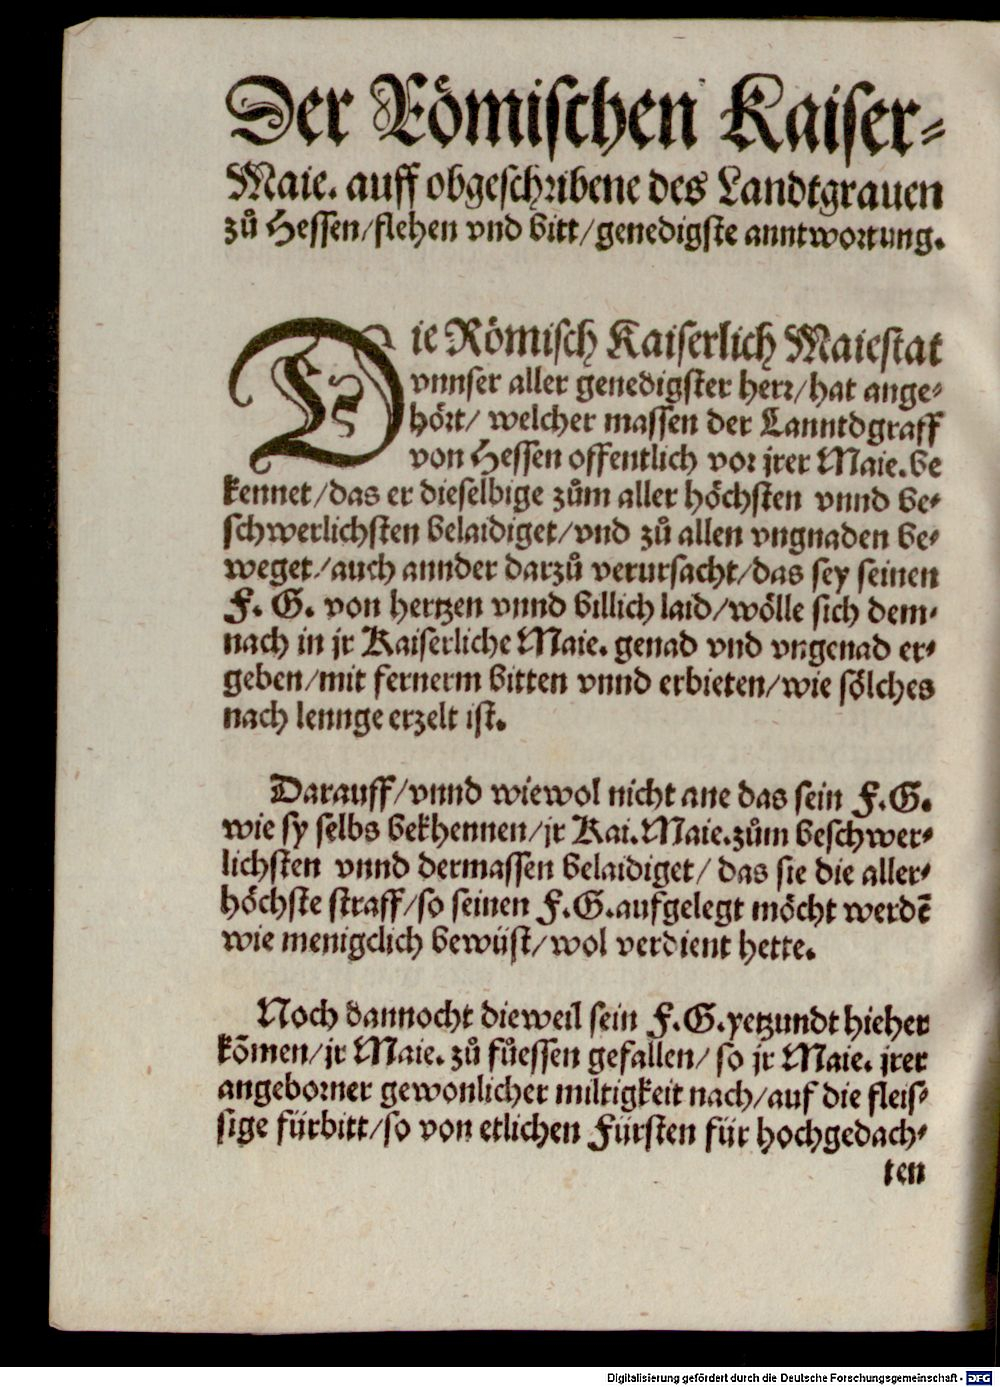 Der Römischen Kaiser-
Maie. auff obgeschribene des Landtgrauen
zů Hessen/flehen vnd bitt/genedigste anntwortung.
Die Römisch Kaiserlich Maiestat
vnnser aller genedigster herr/hat ange-
hört/ welcher massen der Lanntdgraff
von Hessen offentlich vor jrer Maie. be
kennet/das er dieselbige zům aller höchsten vnnd be-
schwerlichsten belaidiget/vnd zů allen vngnaden be-
weget/auch annder darzů verursacht/das sey seinen
F. G. von hertzen vnnd billich laid/wölle sich dem-
nach in jr Kaiserliche Maie. genad vnd vngenad er-
geben/mit fernerm bitten vnnd erbieten/wie sölches
nach lennge erzelt ist.
Darauff/vnnd wiewol nicht ane das sein F.G.
wie sy selbs bekhennen/jr Kai.Maie.zům beschwer-
lichsten vnnd dermassen belaidiget/ das sie die aller-
höchste straff/so seinen F.G.aufgelegt möcht werdē
wie menigclich bewüst/wol verdient hette.
Noch dannocht dieweil sein F.G.yetzundt hieher
kōmen/jr Maie. zů fůessen gefallen/ so jr Maie. jrer
angeborner gewonlicher miltigkeit nach/auf die fleis-
sige fürbitt/so von etlichen Fürsten für hochgedach-
ten
Digitalisierung gefördert durch die Deutsche Forschungsgemeinschaft - DFG